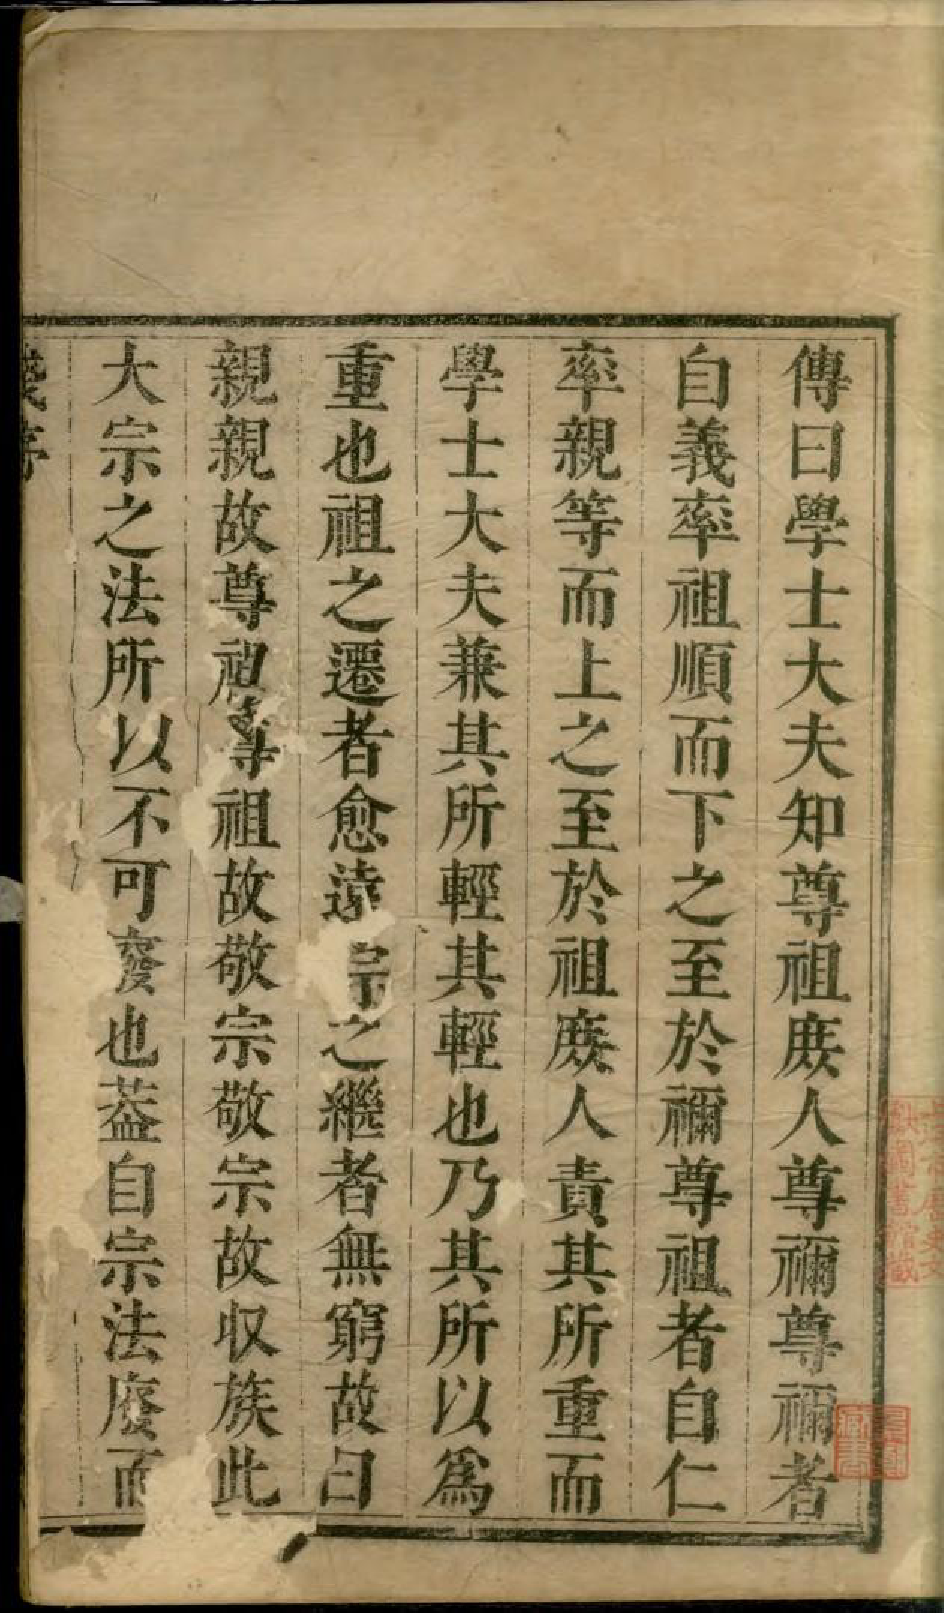 傳曰學士大夫知尊祖庻人尊禰尊禰者
自義率祖順而下之至於禰尊祖者自仁
率親等而上之至於祖庻人責其所重而
學士大夫兼其所輕其輕也乃其所以爲
重也祖之遷者愈遠宗之繼者無窮故曰
親親故尊祖尊祖故敬宗敬宗故収族此
大宗之法所以不可廢也葢自宗法廢而